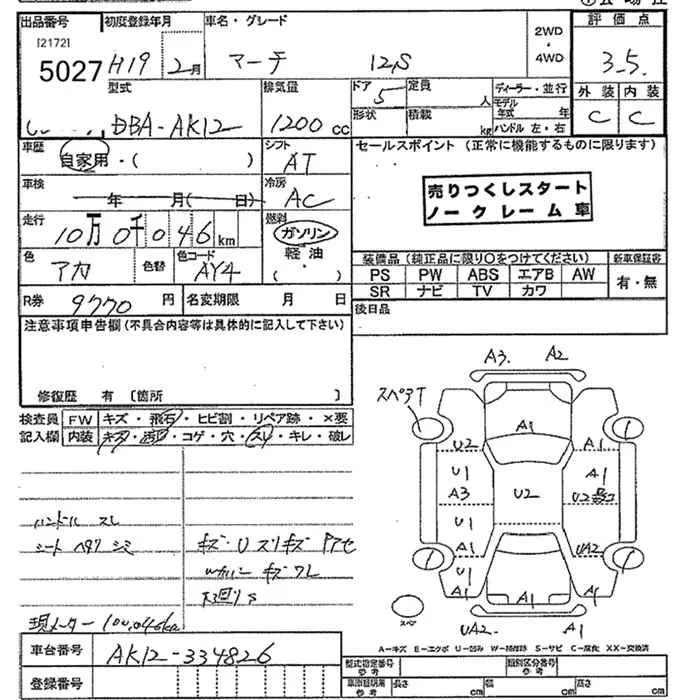 出品番号 初度登録年月 車名・グレード 2WD・4WD 評価点
[2172]
5027 H19 2月 マーチ 12S 3.5
型式 排気量 ドア 定員 ディーラー・並行 外装 内装
DBA-AK12 1200cc 5 人 モデル年式 年 C C
形状 積載 kg ハンドル 左・右
車歴 シフト セールスポイント (正常に機能するものに限ります)
自家用・( ) AT
車検 年 月( 日) 冷房 AC
売りつくしスタート
ノークレーム車
走行 10万0千046km 燃料 ガソリン
軽油
( )
色 アカ 色替 色コード AY4
装備品(純正品に限り○をつけてください) 新車保証書
PS PW ABS エアB AW 有・無
SR ナビ TV カワ
R券 9770円 名変期限 月 日
後日品
注意事項申告欄(不具合内容等は具体的に記入して下さい)
修復歴 有 〔箇所 〕
検査員 FW キズ・飛石・ヒビ割・リペア跡・×要
記入欄 内装 キズ・コゲ・穴・スレ・キレ・破レ
A3 A2
スペアT
A1
U2 A1
U1 A1
A3 U2 U2
U1
A1 UA2
U1
A1 A1 A1
スペア
UA2 A1
ハンドル スレ
シート
現メーター 100,046km
A-キズ E-エクボ U-凹み W-補修跡 S-サビ C-腐化 XX-交換済
車台番号 AK12-334826
登録番号
型式指定番号 参考 類別区分番号 参考
車庫証明用 参考 長さ cm 幅 cm 高さ cm